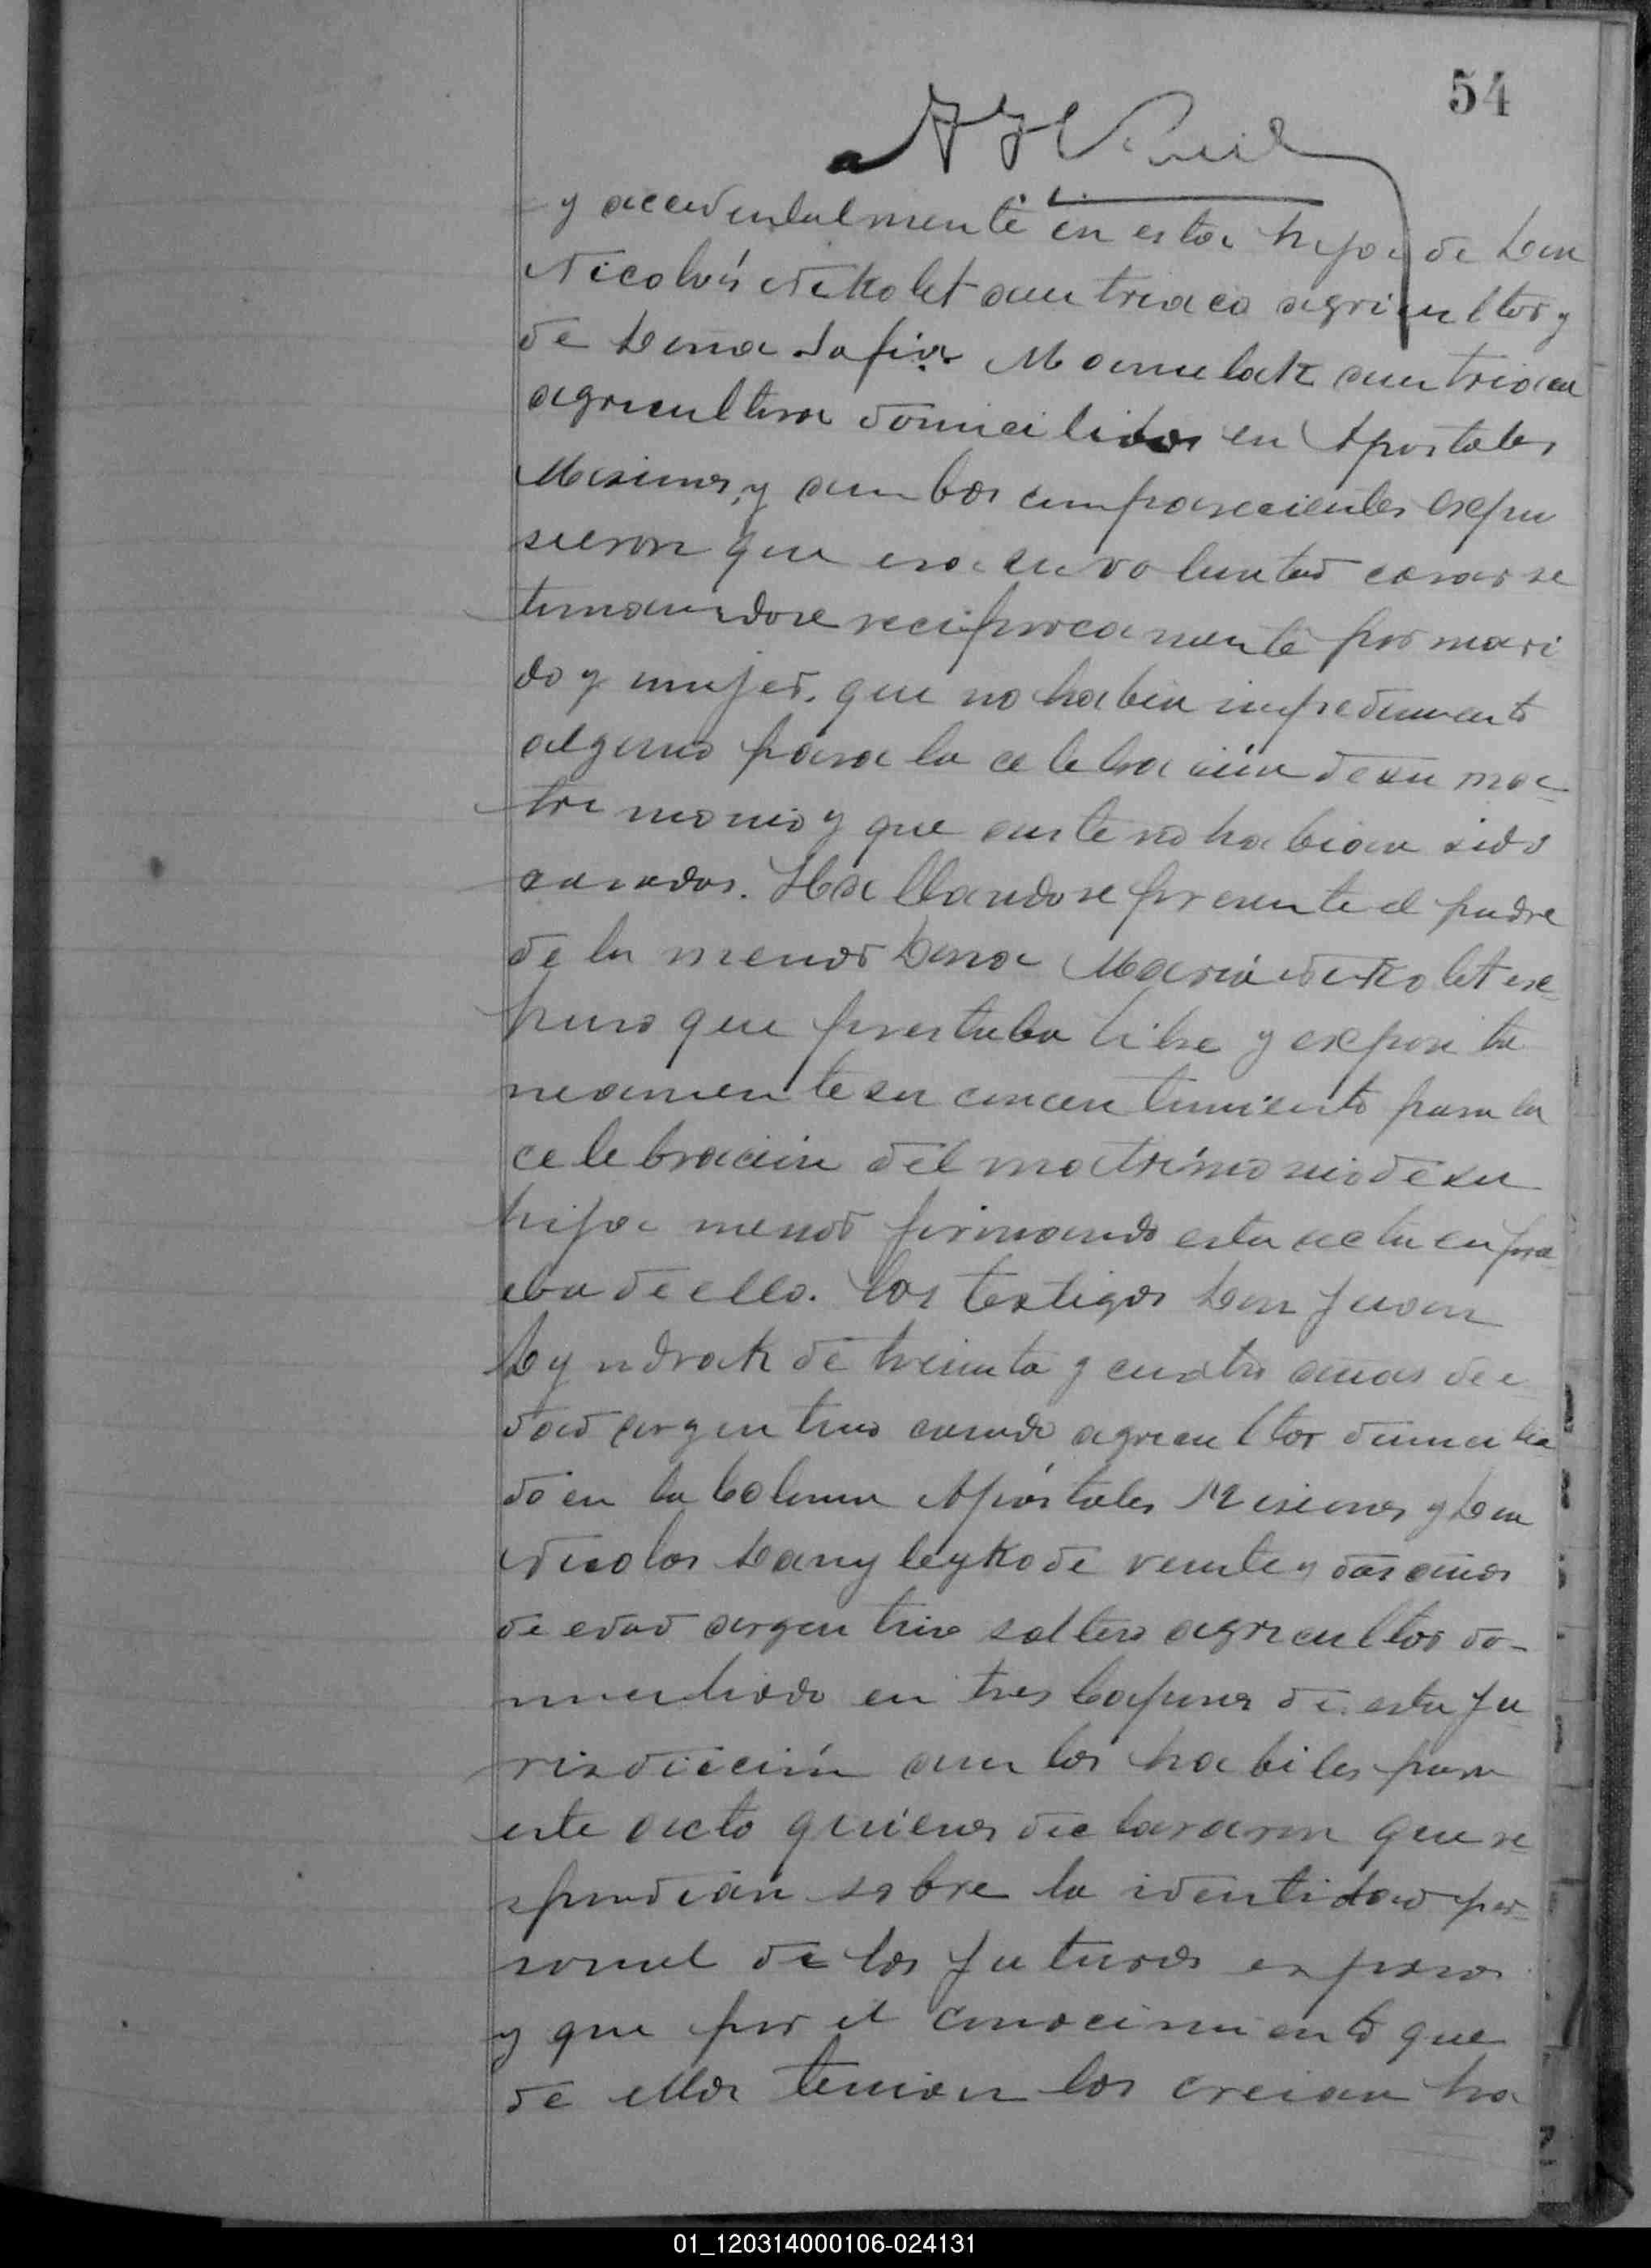 54
y accidentalmente en esta hija de Don
Nicolás Nikolet austriaco agricultor y
de Dona Sofia Mamulak austriaca
agricultora domiciliados en Apostoles
Misiones, y ambos comparecientes expu
sieron que era su voluntad casarse
tomandose reciprocamente por mari
do y mujer, que no habia impedimento
alguno para la celebración de su ma-
trimonio y que ante no habian sido
casados. Hallandose presente el padre
de la menor Dona Maria Nikolet ex-
puso que prestaba libre y exponta
neamente su concentimiento para la
celebración del matrimonio de su
hija menor firmando esta acta en prue
eba de ello. Los testigos Don Juan
Dyndrak de treinta y cuatro años de e
dad argentino casado agricultor domicilia
do en la Colonia Apóstoles Misiones y Don
Nicolas Danyleyko de veinte y dos años
de edad argentino soltero agricultor do-
miciliado en tres Capones de esta ju
risdicción ambos habiles para
este acto quienes declararon que re
spondian sobre la identidad per-
sonal de los futuros esposos
y que por el conocimiento que
de ellos tenian los creian ha
01_120314000106-024131